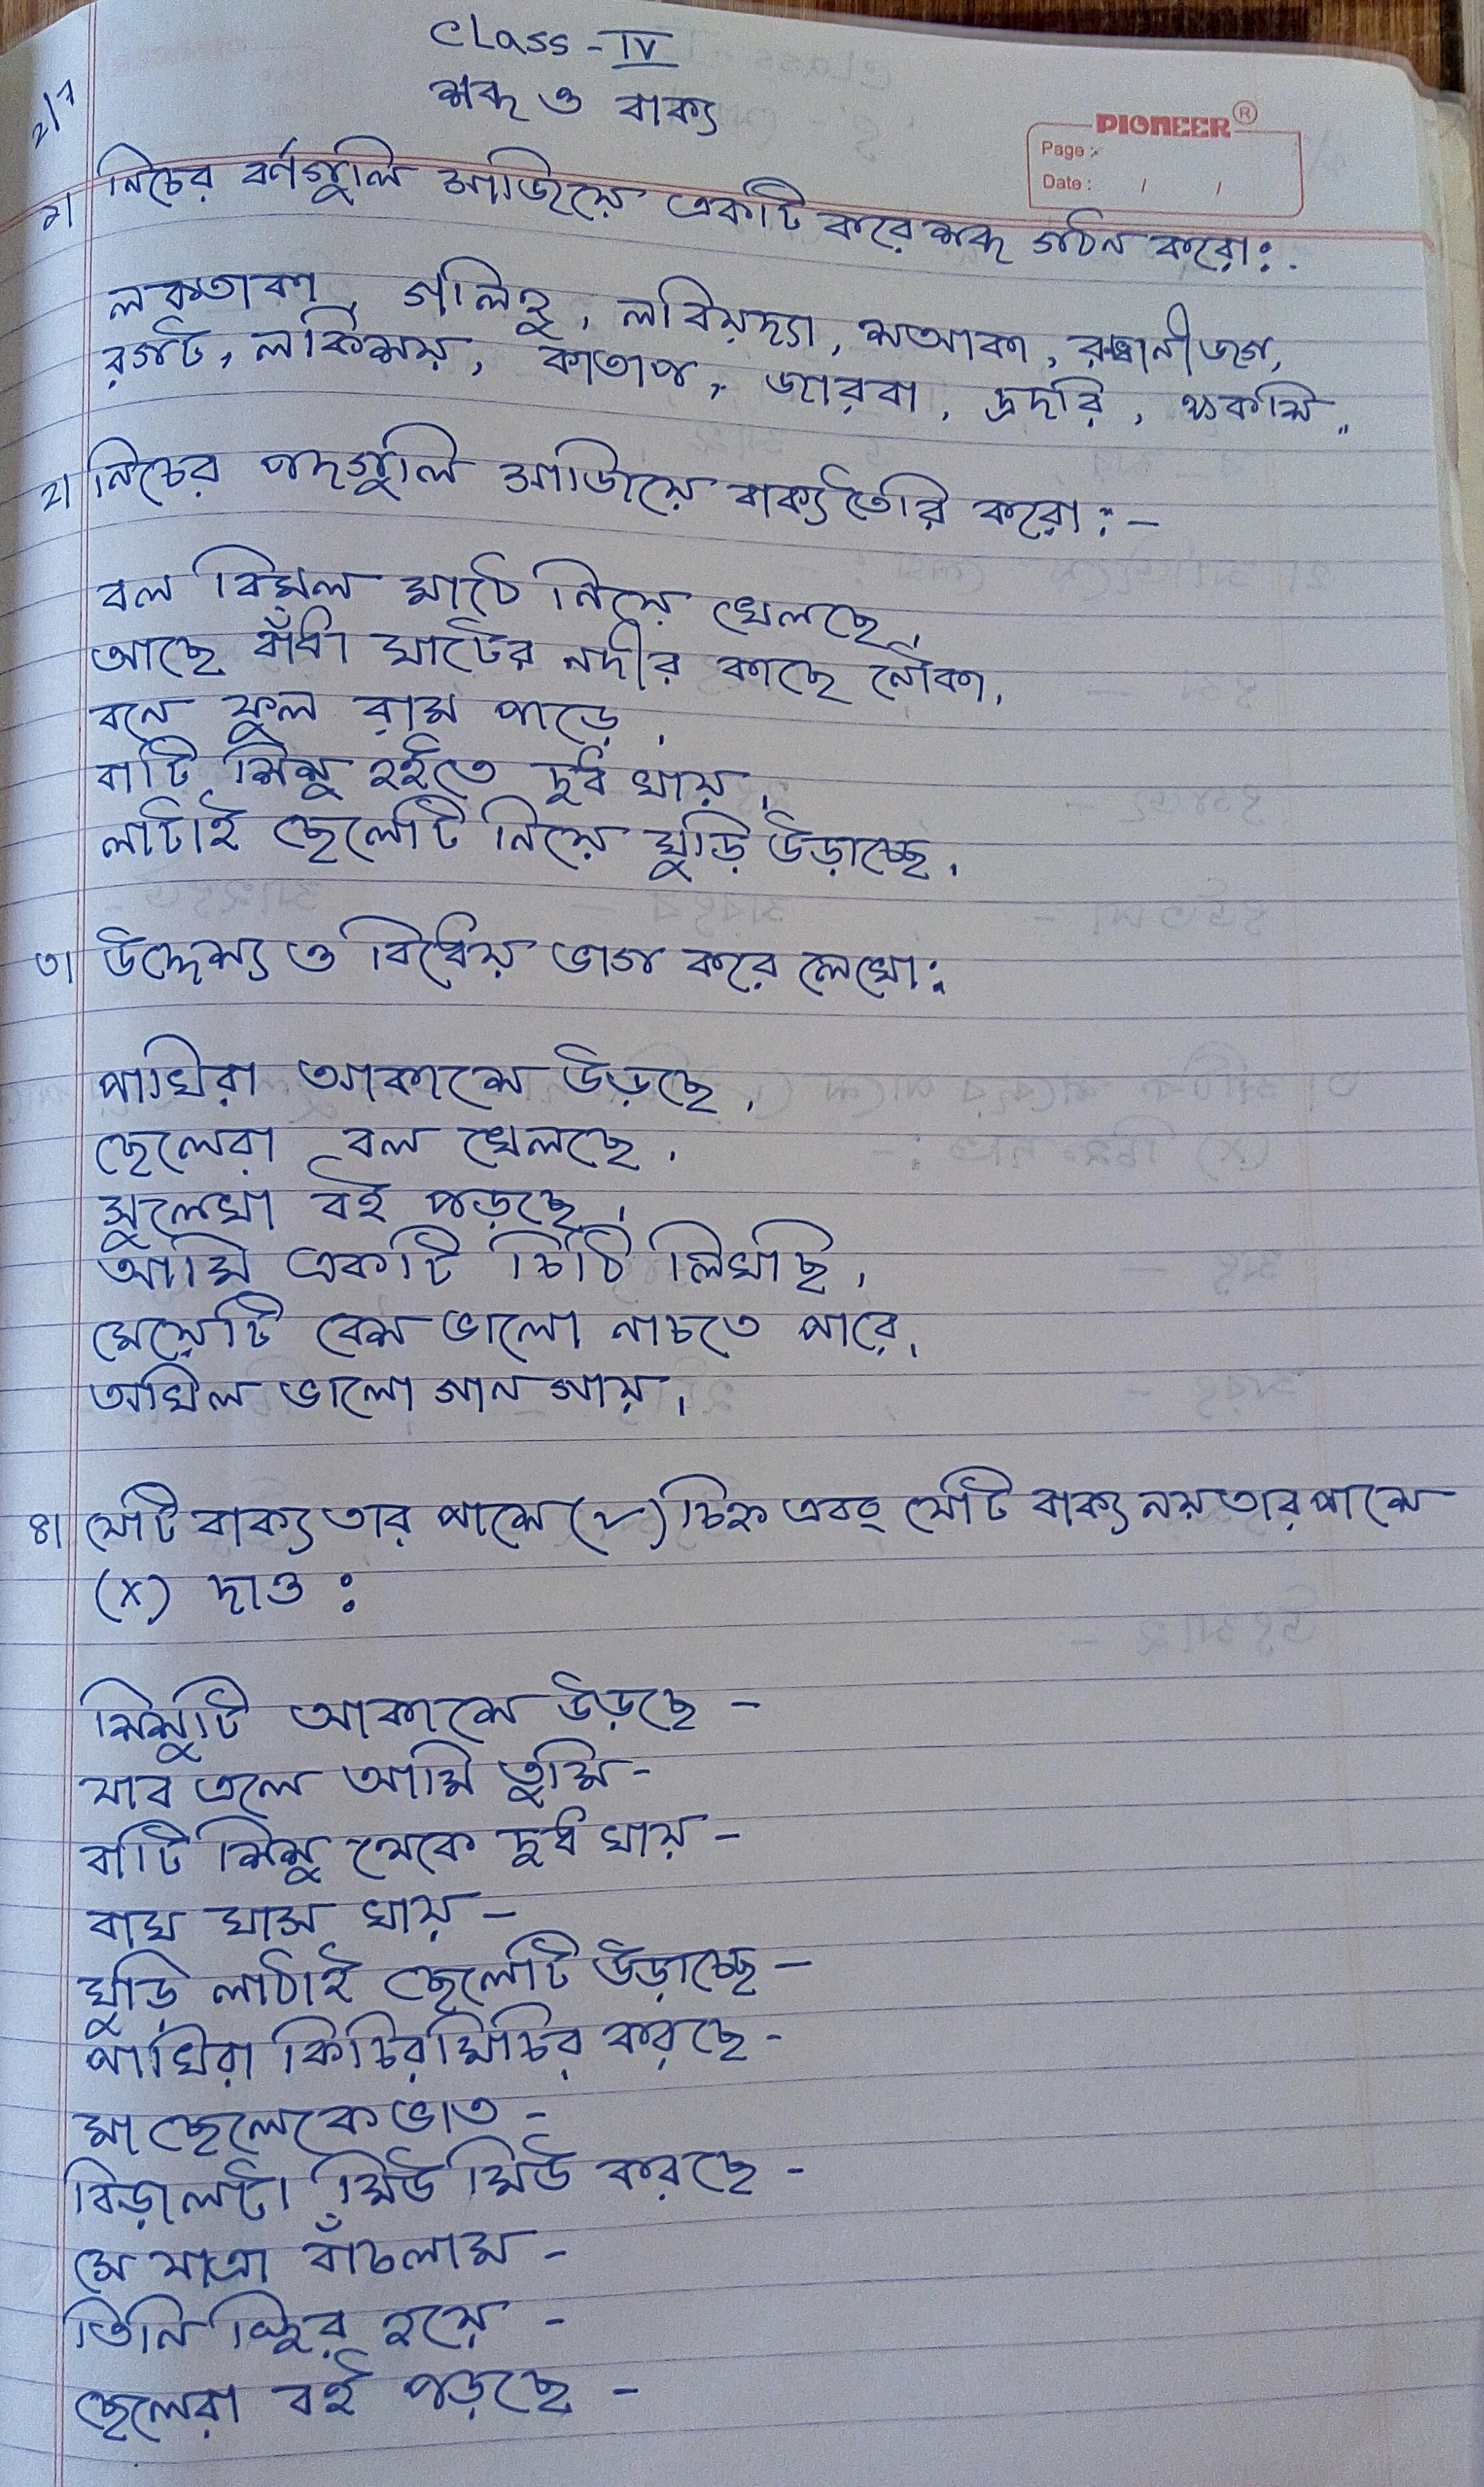 ২/১
CLASS - IV
শব্দ ও বাক্য
PIONEER ®
Page :
Date : / /
১। নিচের বর্ণগুলি সাজিয়ে একটি করে শব্দ গঠন করো:.
লকাতাকা, গলিহু, লবিয়দ্যা, শআকা,
রগটি, লকিশয়, কাতাপ, জ্যারবা, দ্রদরি,
২। নিচের পদগুলি সাজিয়ে বাক্য তৈরি করো :-
বল বিমল মাঠে নিয়ে খেলছে,
আছে বাঁধা ঘাটের নদীর কাছে নৌকা,
বনে ফুল রাম পাড়ে,
বাটি শিশু হইতে দুধ খায়,
লাটাই ছেলেটি নিয়ে ঘুড়ি উড়াচ্ছে,
৩। উদ্দেশ্য ও বিধেয় ভাগ করে লেখো:
পাখিরা আকাশে উড়ছে,
ছেলেরা বল খেলছে,
সুলেখা বই পড়ছে,
আমি একটি চিঠি লিখছি,
মেয়েটি বেশ ভালো নাচতে পারে,
অখিল ভালো গান গায়,
৪। যেটি বাক্য তার পাশে (✓) চিহ্ন এবং যেটি বাক্য নয় তার পাশে
(x) দাও :
শিশুটি আকাশে উড়ছে -
যাব এলে আমি তুমি -
বাটি শিশু থেকে দুধ খায় -
বাঘ ঘাস খায় -
ঘুড়ি লাঠাই ছেলেটি উড়াচ্ছে -
পাখিরা কিচিরমিচির করছে -
মা ছেলেকে ভাত -
বিড়ালটা মিউ মিউ করছে -
সে যাত্রা বাঁচলাম -
তিনি স্থির হয়ে -
ছেলেরা বই পড়ছে -